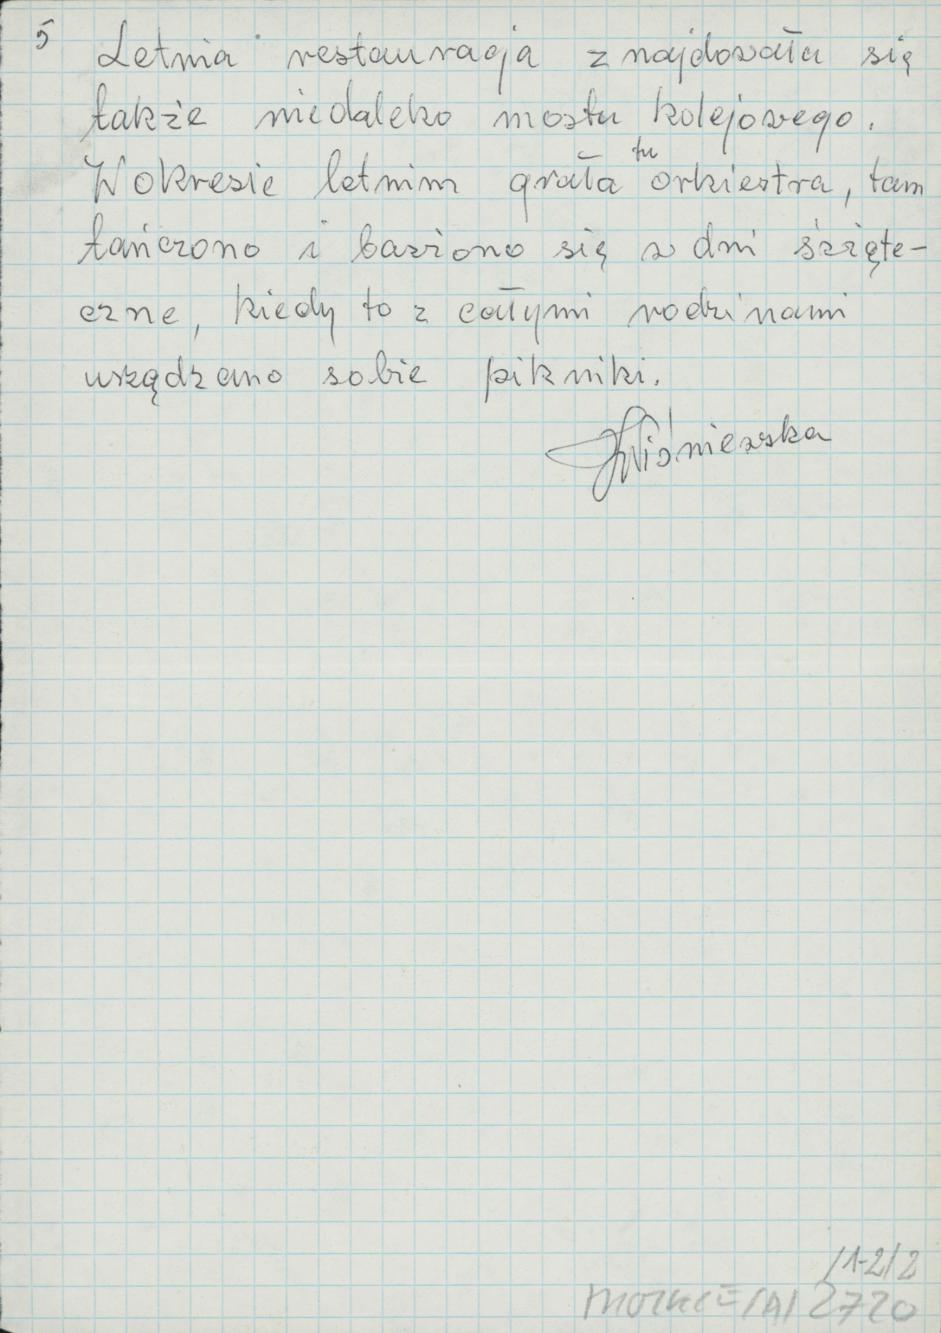 5
Letnia restauracja znajdowała się
także niedaleko mostu kolejowego.
W okresie letnim grała tu orkiestra, tam
tańczono i bawiono się w dni święte-
czne, kiedy to z całymi rodzinami
urządzano sobie pikniki.
Wiśniewska
/1-2/2
2720